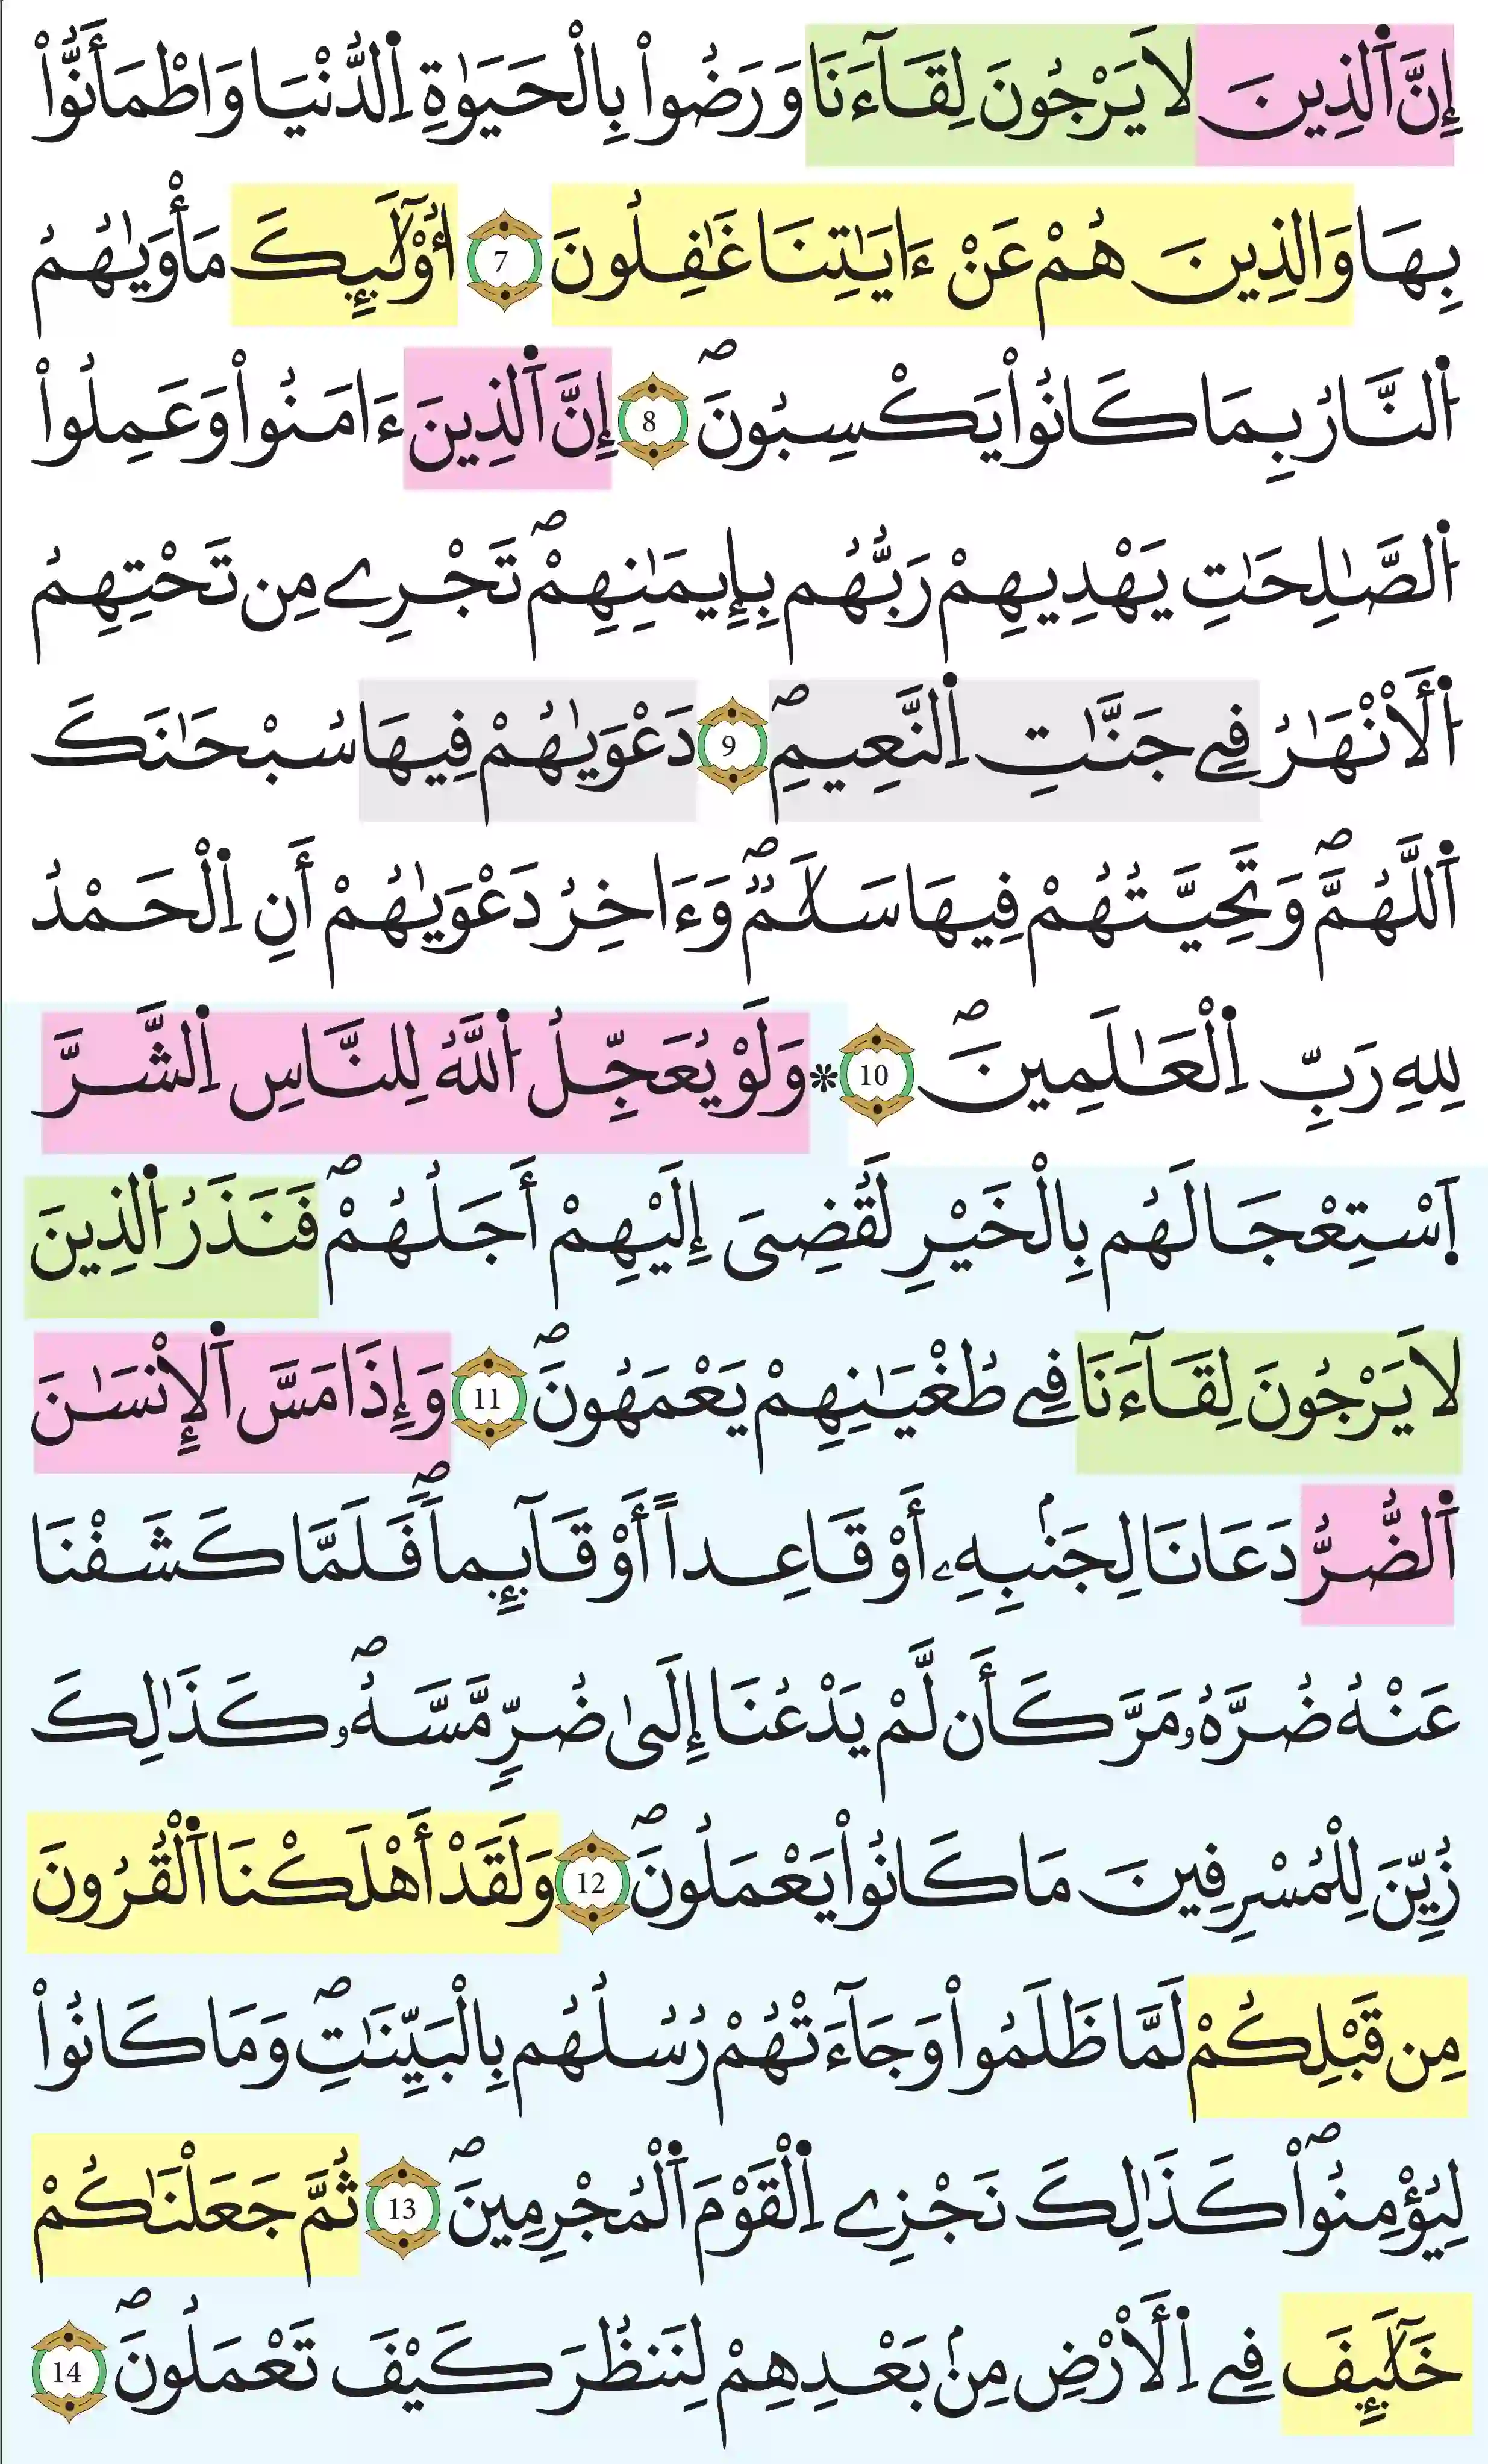 إِنَّ اَ۬لذِينَ لَا يَرْجُونَ لِقَآءَنَا وَرَضُواْ بِالْحَيَوٰةِ اِ۬لدُّنْيَا وَاطْمَأَنُّواْ
بِهَا وَالذِينَ هُمْ عَنْ ءَايَٰتِنَا غَٰفِلُونَ 7 أُوْلَٰٓئِكَ مَأْوَيٰهُمُ
اُ۬لنَّارُ بِمَا كَانُواْ يَكْسِبُونَۖ 8 إِنَّ اَ۬لذِينَ ءَامَنُواْ وَعَمِلُواْ
اُ۬لصَّٰلِحَٰتِ يَهْدِيهِمْ رَبُّهُم بِإِيمَٰنِهِمْۖ تَجْرِے مِن تَحْتِهِمُ
اُ۬لَانْهَٰرُ فِے جَنَّٰتِ اِ۬لنَّعِيمِۖ 9 دَعْوَيٰهُمْ فِيهَا سُبْحَٰنَكَ
اَ۬للَّهُمَّۖ وَتَحِيَّتُهُمْ فِيهَا سَلَٰمٞۖ وَءَاخِرُ دَعْوَيٰهُمْ أَنِ اِ۬لْحَمْدُ
لِلهِ رَبِّ اِ۬لْعَٰلَمِينَۖ 10 ۞ وَلَوْ يُعَجِّلُ اُ۬للَّهُ لِلنَّاسِ اِ۬لشَّرَّ
اَ۪سْتِعْجَالَهُم بِالْخَيْرِ لَقُضِيَ إِلَيْهِمْ أَجَلُهُمْۖ فَنَذَرُ اُ۬لذِينَ
لَا يَرْجُونَ لِقَآءَنَا فِے طُغْيَٰنِهِمْ يَعْمَهُونَۖ 11 وَإِذَا مَسَّ اَ۬لِانسَٰنَ
اَ۬لضُّرُّ دَعَانَا لِجَنۢبِهِۦٓ أَوْ قَاعِداً أَوْ قَآئِماٗۖ فَلَمَّا كَشَفْنَا
عَنْهُ ضُرَّهُۥ مَرَّ كَأَن لَّمْ يَدْعُنَا إِلَىٰ ضُرّٖ مَّسَّهُۥۖ كَذَٰلِكَ
زُيِّنَ لِلْمُسْرِفِينَ مَا كَانُواْ يَعْمَلُونَۖ 12 وَلَقَدْ أَهْلَكْنَا اَ۬لْقُرُونَ
مِن قَبْلِكُمْ لَمَّا ظَلَمُواْ وَجَآءَتْهُمْ رُسُلُهُم بِالْبَيِّنَٰتِۖ وَمَا كَانُواْ
لِيُؤْمِنُواْۖ كَذَٰلِكَ نَجْزِے اِ۬لْقَوْمَ اَ۬لْمُجْرِمِينَۖ 13 ثُمَّ جَعَلْنَٰكُمْ
خَلَٰٓئِفَ فِے اِ۬لَارْضِ مِنۢ بَعْدِهِمْ لِنَنظُرَ كَيْفَ تَعْمَلُونَۖ 14